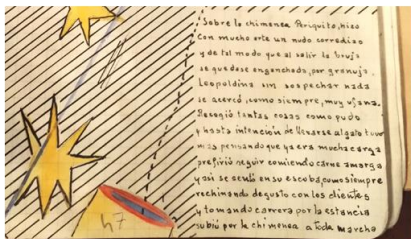 Sobre la chimenea Periquito, hizo
Con mucho arte un nudo corredizo
y de tal modo que al salir la bruja
se quedase enganchada, por granuja.
Leopoldina sin sospechar nada
se acercó, como siempre, muy ufana.
Recogió tantas cosas como pudo
y hasta intención de llevarse al gato tuvo
mas, pensando que ya era mucha carga
prefirió seguir comiendo carne amarga
y así se sentó en su escoba, como siempre
rechinando de gusto con los dientes
y tomando carrera por la estancia
subió por la chimenea a toda marcha
47